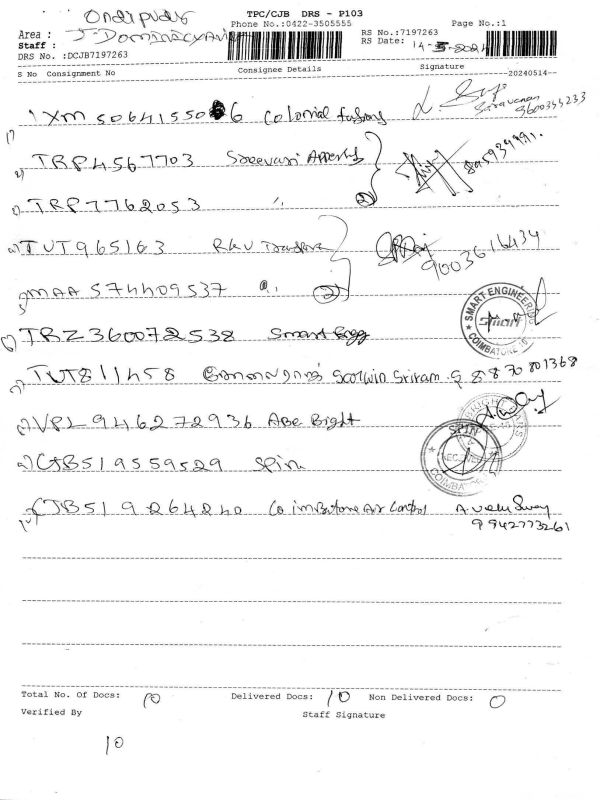 Ondipudur TPC/CJB DRS - P103
Phone No.:0422-3505555 Page No.:1
Area : J. DOMINIC XAVIER RS No.:7197263
Staff : RS Date: 14-5-2024
DRS No. :DCJB7197263
S No Consignment No Consignee Details Signature --20240514--
1) IXM 506415506 Colonial Saravanan 9600355233
2) TRP4567703 Sreevari Apparels
3) TRP7762053 〃 (2)
4) TUT965163 RKV 9003616434
5) MAA 574409537 〃 (2) SMART ENGINEERING COIMBATORE
6) TRZ360072538 Smart Engg
7) TUT811458 Sriram 8870801368
8) VPL 946272936 Abe Bright
9) CJB519559529 Spin SPIN COIMBATORE
10) CJB519264240 Coimbatore Air Control A. Velu Samy
9942773261
Total No. Of Docs: 10 Delivered Docs: 10 Non Delivered Docs: 0
Verified By Staff Signature
10